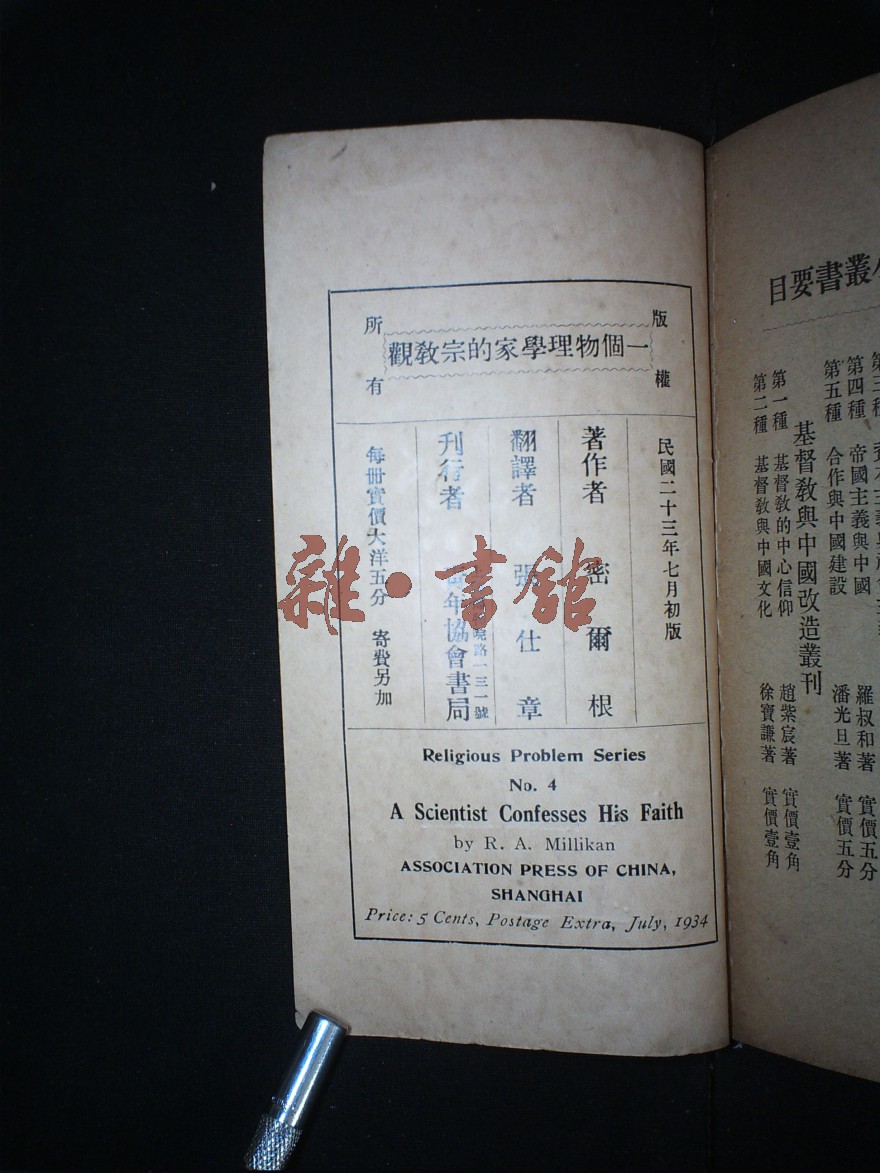 版權所有
一個物理學家的宗教觀
民國二十三年七月初版
著作者 密爾根
翻譯者 張仕章
刊行者 年協會書局
路一三一號
每冊實價大洋五分 寄費另加
雜·書舘
Religious Problem Series
No. 4
A Scientist Confesses His Faith
by R. A. Millikan
ASSOCIATION PRESS OF CHINA,
SHANGHAI
Price: 5 Cents, Postage Extra, July, 1934
叢書要目
第三種
第四種 帝國主義與中國 羅叔和著 實價五分
第五種 合作與中國建設 潘光旦著 實價五分
基督教與中國改造叢刊
第一種 基督教的中心信仰 趙紫宸著 實價壹角
第二種 基督教與中國文化 徐寶謙著 實價壹角